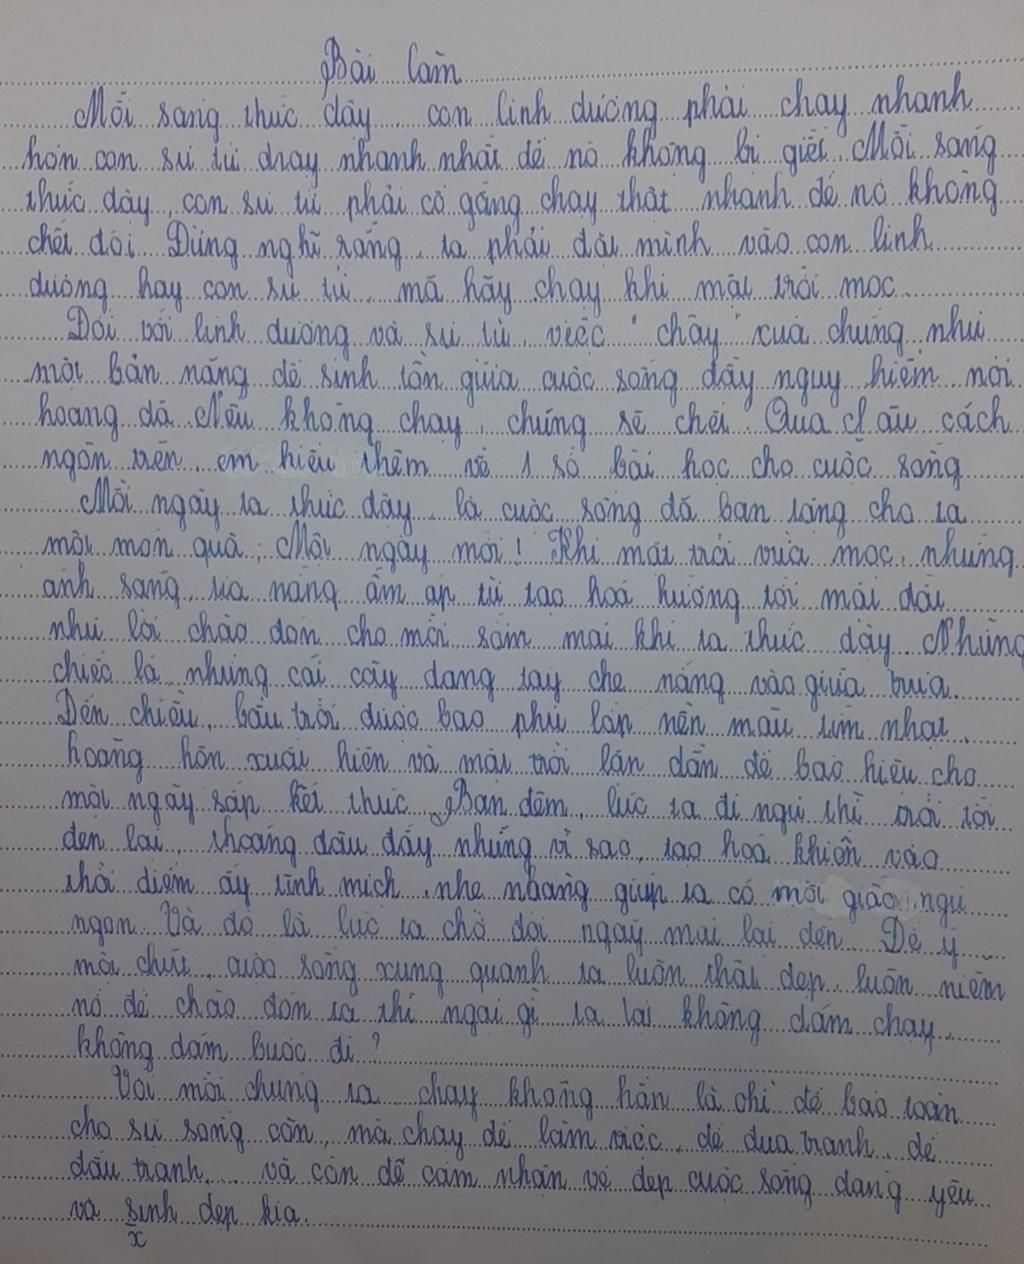 Bài làm
Mỗi sáng thức dậy, con linh dương phải chạy nhanh
hơn con sư tử chạy nhanh nhất để nó không bị giết. Mỗi sáng
thức dậy, con sư tử phải cố gắng chạy thật nhanh để nó không
chết đói. Đừng nghĩ rằng, ta phải đặt mình vào con linh
dương hay con sư tử, mà hãy chạy khi mặt trời mọc.
Đối với linh dương và sư tử, việc "chạy" của chúng như
một bản năng để sinh tồn giữa cuộc sống đầy nguy hiểm nơi
hoang dã. Nếu không chạy, chúng sẽ chết. Qua câu cách
ngôn trên, em hiểu thêm về 1 số bài học cho cuộc sống.
Mỗi ngày ta thức dậy, là cuộc sống đã ban tặng cho ta
một món quà: Một ngày mới! Khi mặt trời vừa mọc, những
ánh sáng, tia nắng ấm áp từ tạo hoá hướng tới mặt đất
như lời chào đón cho mỗi sớm mai khi ta thức dậy. Những
chiếc lá, những cái cây dang tay che nắng vào giữa trưa.
Đến chiều, bầu trời được bao phủ lớp nền màu tím nhạt,
hoàng hôn xuất hiện và mặt trời lặn dần để báo hiệu cho
một ngày sắp kết thúc. Ban đêm, lúc ta đi ngủ thì trời tối
đen lại, thoáng đâu đấy những vì sao, tạo hoá khiến vào
thời điểm ấy tĩnh mịch, nhẹ nhàng giúp ta có một giấc ngủ
ngon. Và đó là lúc ta chờ đợi ngày mai lại đến. Để ý
một chút, cuộc sống xung quanh ta luôn thật đẹp, luôn niềm
nở để chào đón ta thì ngại gì ta lại không dám chạy,
không dám bước đi?
Với mỗi chúng ta, chạy không hẳn là chỉ để bảo toàn
cho sự sống còn, mà chạy để làm việc, để đua tranh, để
đấu tranh,... và còn để cảm nhận vẻ đẹp cuộc sống đáng yêu
và sinh đẹp kia.
x